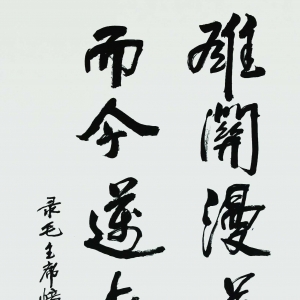 雄關漫
而今邁
录毛主席